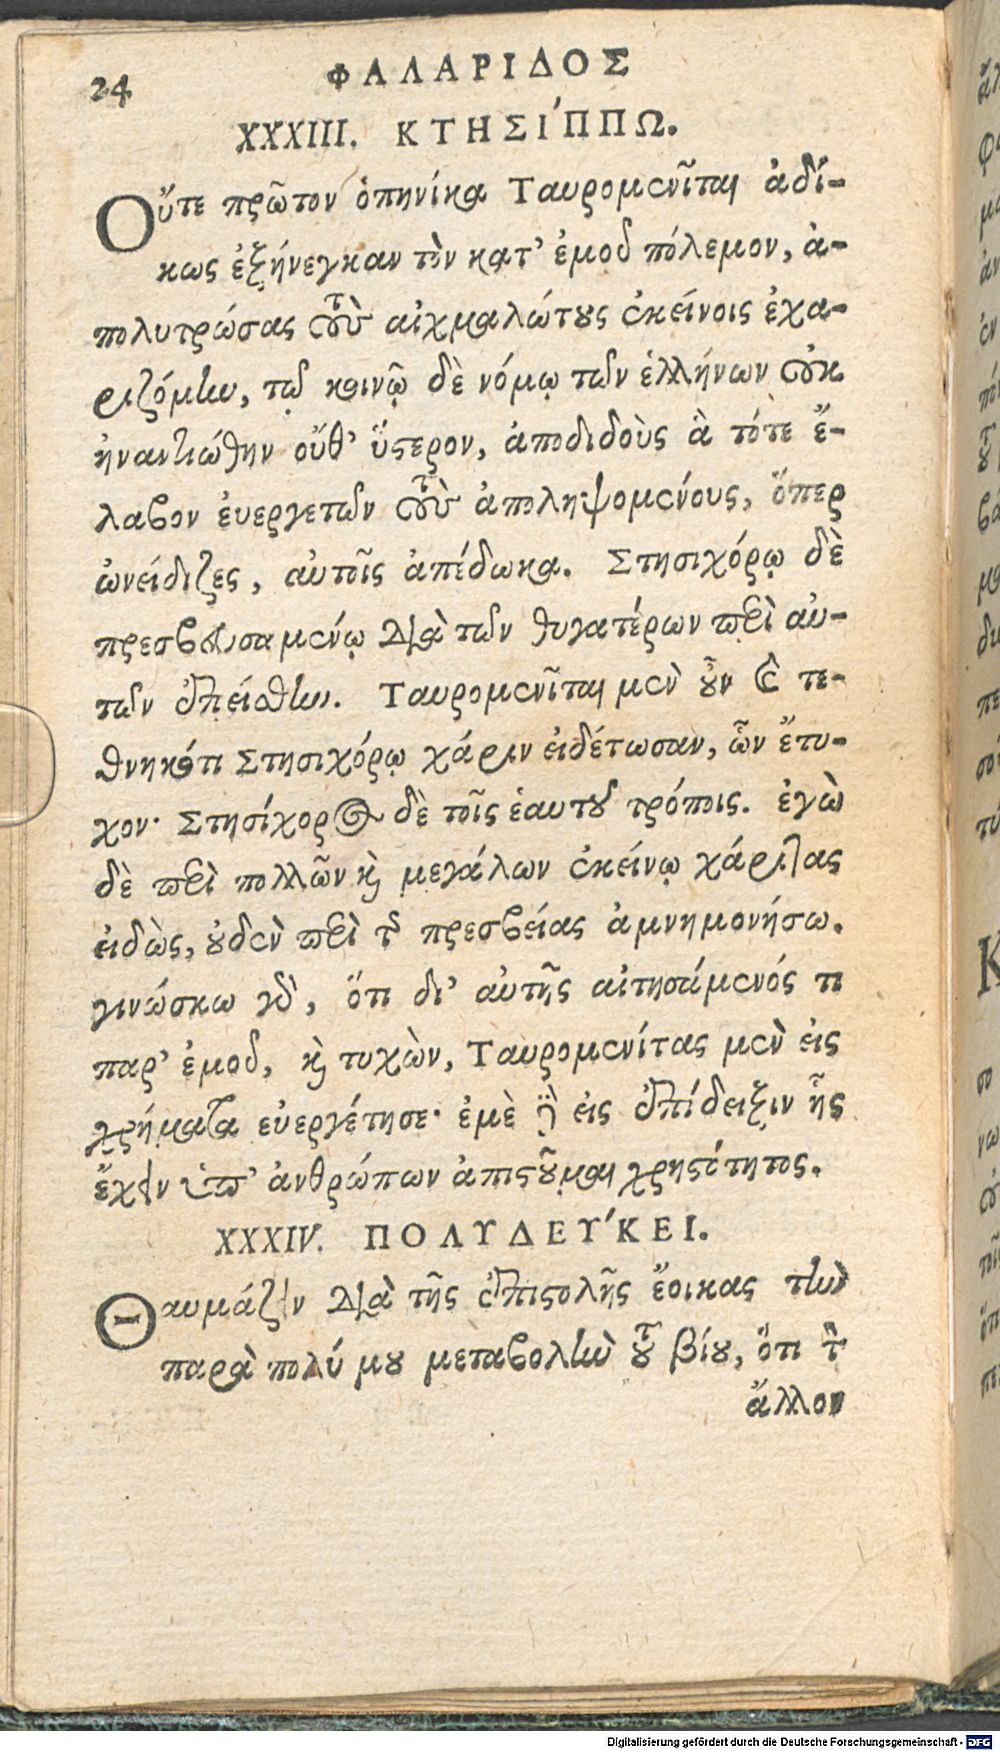 24 ΦΑΛΑΡΙΔΟΣ
XXXIII. ΚΤΗΣΙΠΠΩ.
Οὔτε πρῶτον ὁπηνίκα Ταυρομενῖται ἀδί-
κως ἐξήνεγκαν τὸν κατ' ἐμοῦ πόλεμον, ἀ-
πολυτρώσας τοὺς αἰχμαλώτους ἐκείνοις ἐχα-
ριζόμην, τῷ κοινῷ δὲ νόμῳ τῶν ἑλλήνων οὐκ
ἠναντιώθην οὔθ' ὕστερον, ἀποδιδοὺς ἃ τότε ἔ-
λαβον εὐεργετῶν τοὺς ἀποληψομένους, ὅπερ
ὠνείδιζες, αὐτοῖς ἀπέδωκα. Στησιχόρῳ δὲ
πρεσβευσαμένῳ διὰ τῶν θυγατέρων περὶ αὐ-
τῶν ἐπείσθην. Ταυρομενῖται μὲν οὖν καὶ τε-
θνηκότι Στησιχόρῳ χάριν εἰδέτωσαν, ὧν ἔτυ-
χον· Στησίχορος δὲ τοῖς ἑαυτοῦ τρόποις. ἐγὼ
δὲ περὶ πολλῶν καὶ μεγάλων ἐκείνῳ χάριτας
εἰδὼς, οὐδὲν περὶ τῆς πρεσβείας ἀμνημονήσω.
γινώσκω γὰρ, ὅτι δι' αὐτῆς αἰτησάμενός τι
παρ' ἐμοῦ, καὶ τυχὼν, Ταυρομενίτας μὲν εἰς
χρήματα εὐεργέτησε· ἐμὲ δὲ εἰς ἐπίδειξιν ἧς
ἔχειν ὑπ' ἀνθρώπων ἀπιστοῦμαι χρηστότητος.
XXXIV. ΠΟΛΥΔΕΥΚΕΙ.
Θαυμάζειν διὰ τῆς ἐπιστολῆς ἔοικας τὴν
παρὰ πολύ μου μεταβολὴν τοῦ βίου, ὅτι τὸν
ἄλλον
Digitalisierung gefördert durch die Deutsche Forschungsgemeinschaft - DFG